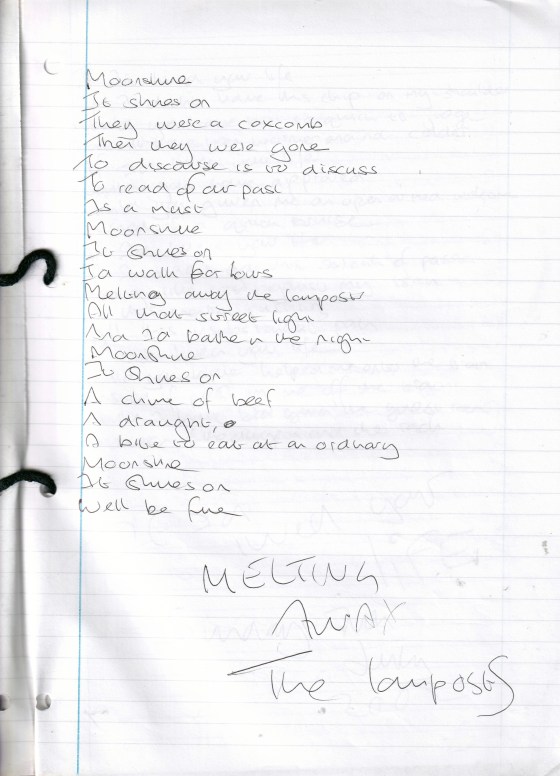 Moonshine
It shines on
They were a coxcomb
Then they were gone
To discourse is to discuss
To read of our past
Is a must
Moonshine
It shines on
I'd walk for hours
Melting away the lamposts
All that street light
And I'd bathe in the night
Moonshine
It shines on
A chine of beef
A draught,
A bite to eat at an ordinary
Moonshine
It shines on
We'll be fine
MELTING
AWAY
The lamposts